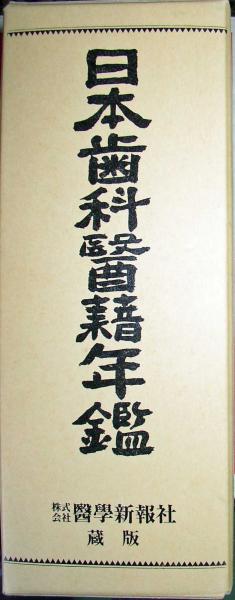 日本歯科醫籍年鑑
株式会社 醫學新報社
蔵版